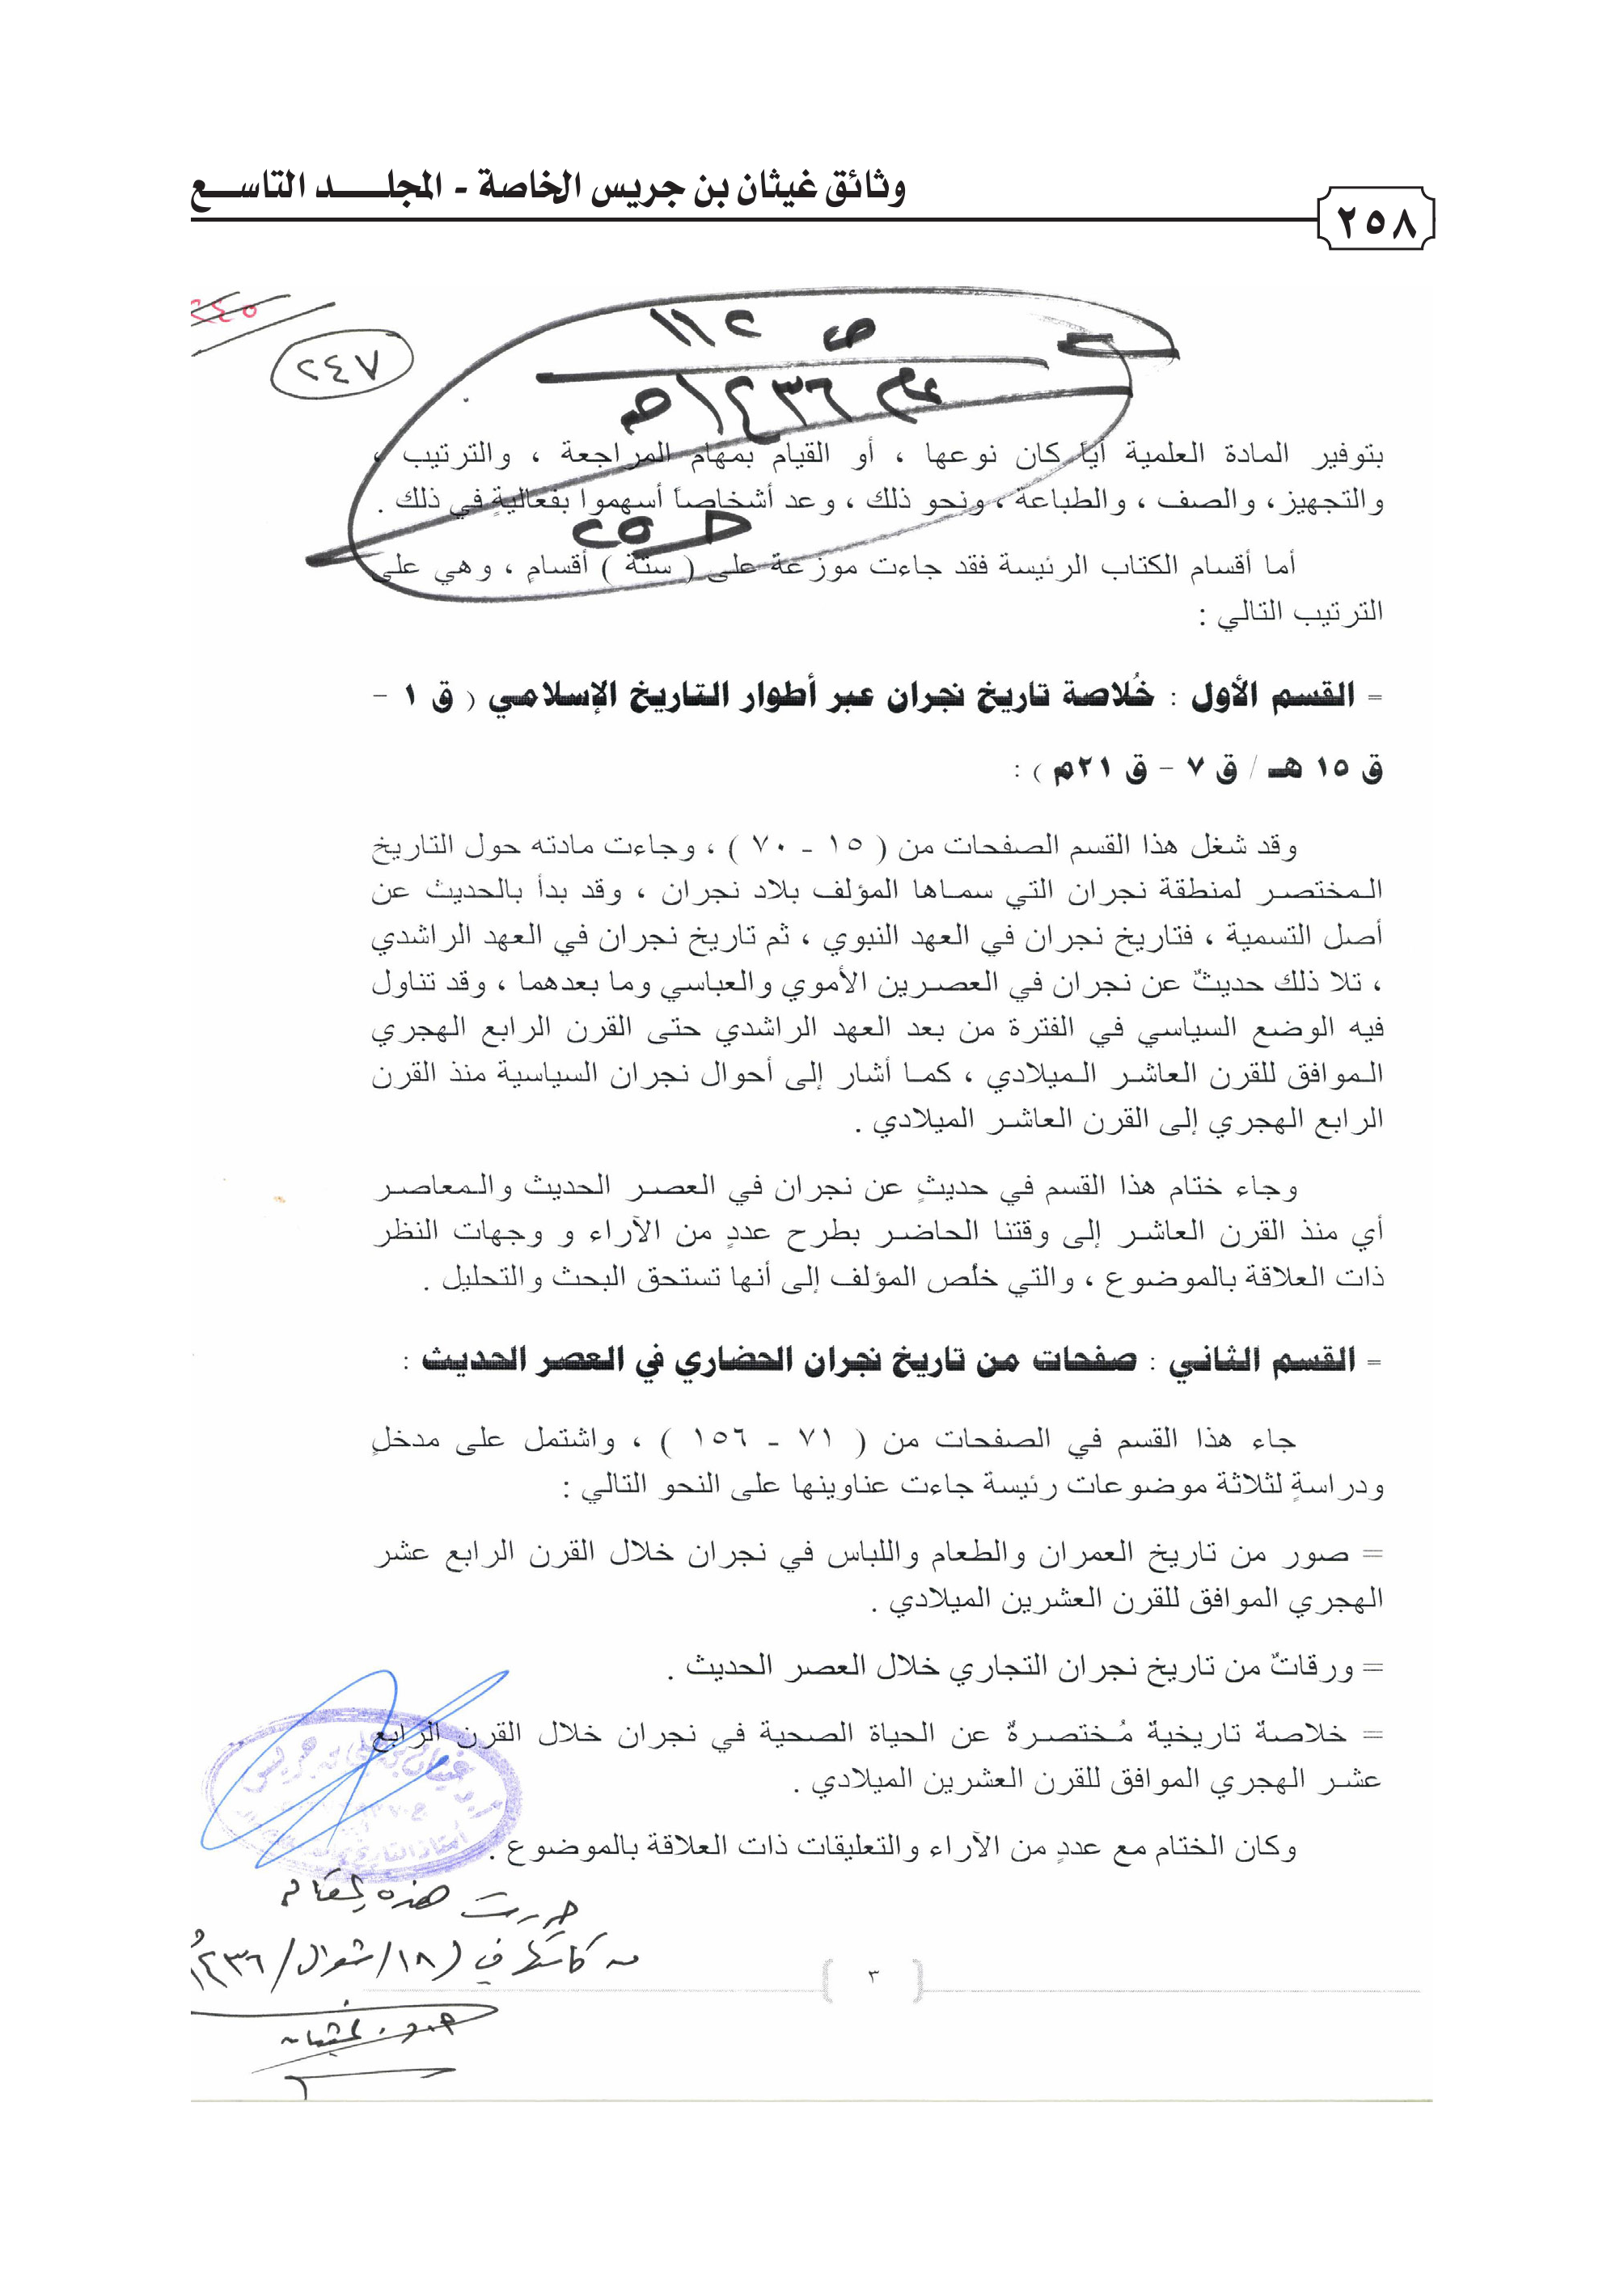 وثائق غيثان بن جريس الخاصة - المجلد التاسع
٢٥٨
٢٤٥
٢٤٧
ص ١١٢
عام ١٤٣٦هـ
بتوفير المادة العلمية أياً كان نوعها ، أو القيام بمهام المراجعة ، والترتيب ،
والتجهيز، والصف ، والطباعة ، ونحو ذلك ، وعد أشخاصاً أسهموا بفعاليةٍ في ذلك .
أما أقسام الكتاب الرئيسة فقد جاءت موزعة على ( ستة ) أقسامٍ ، وهي على
الترتيب التالي :
= القسم الأول : خُلاصة تاريخ نجران عبر أطوار التاريخ الإسلامي ( ق ١ -
ق ١٥ هـ / ق ٧ - ق ٢١م ) :
وقد شغل هذا القسم الصفحات من ( ١٥ - ٧٠ ) ، وجاءت مادته حول التاريخ
المختصر لمنطقة نجران التي سماها المؤلف بلاد نجران ، وقد بدأ بالحديث عن
أصل التسمية ، فتاريخ نجران في العهد النبوي ، ثم تاريخ نجران في العهد الراشدي
، تلا ذلك حديثٌ عن نجران في العصرين الأموي والعباسي وما بعدهما ، وقد تناول
فيه الوضع السياسي في الفترة من بعد العهد الراشدي حتى القرن الرابع الهجري
الموافق للقرن العاشر الميلادي ، كما أشار إلى أحوال نجران السياسية منذ القرن
الرابع الهجري إلى القرن العاشر الميلادي .
وجاء ختام هذا القسم في حديثٍ عن نجران في العصر الحديث والمعاصر
أي منذ القرن العاشر إلى وقتنا الحاضر بطرح عددٍ من الآراء و وجهات النظر
ذات العلاقة بالموضوع ، والتي خلُص المؤلف إلى أنها تستحق البحث والتحليل .
= القسم الثاني : صفحات من تاريخ نجران الحضاري في العصر الحديث :
جاء هذا القسم في الصفحات من ( ٧١ - ١٥٦ ) ، واشتمل على مدخلٍ
ودراسةٍ لثلاثة موضوعات رئيسة جاءت عناوينها على النحو التالي :
= صور من تاريخ العمران والطعام واللباس في نجران خلال القرن الرابع عشر
الهجري الموافق للقرن العشرين الميلادي .
= ورقاتٌ من تاريخ نجران التجاري خلال العصر الحديث .
= خلاصةٌ تاريخيةٌ مُختصرةٌ عن الحياة الصحية في نجران خلال القرن الرابع
عشر الهجري الموافق للقرن العشرين الميلادي .
وكان الختام مع عددٍ من الآراء والتعليقات ذات العلاقة بالموضوع .
هذه
في (١٨/شوال/١٤٣٦
٣